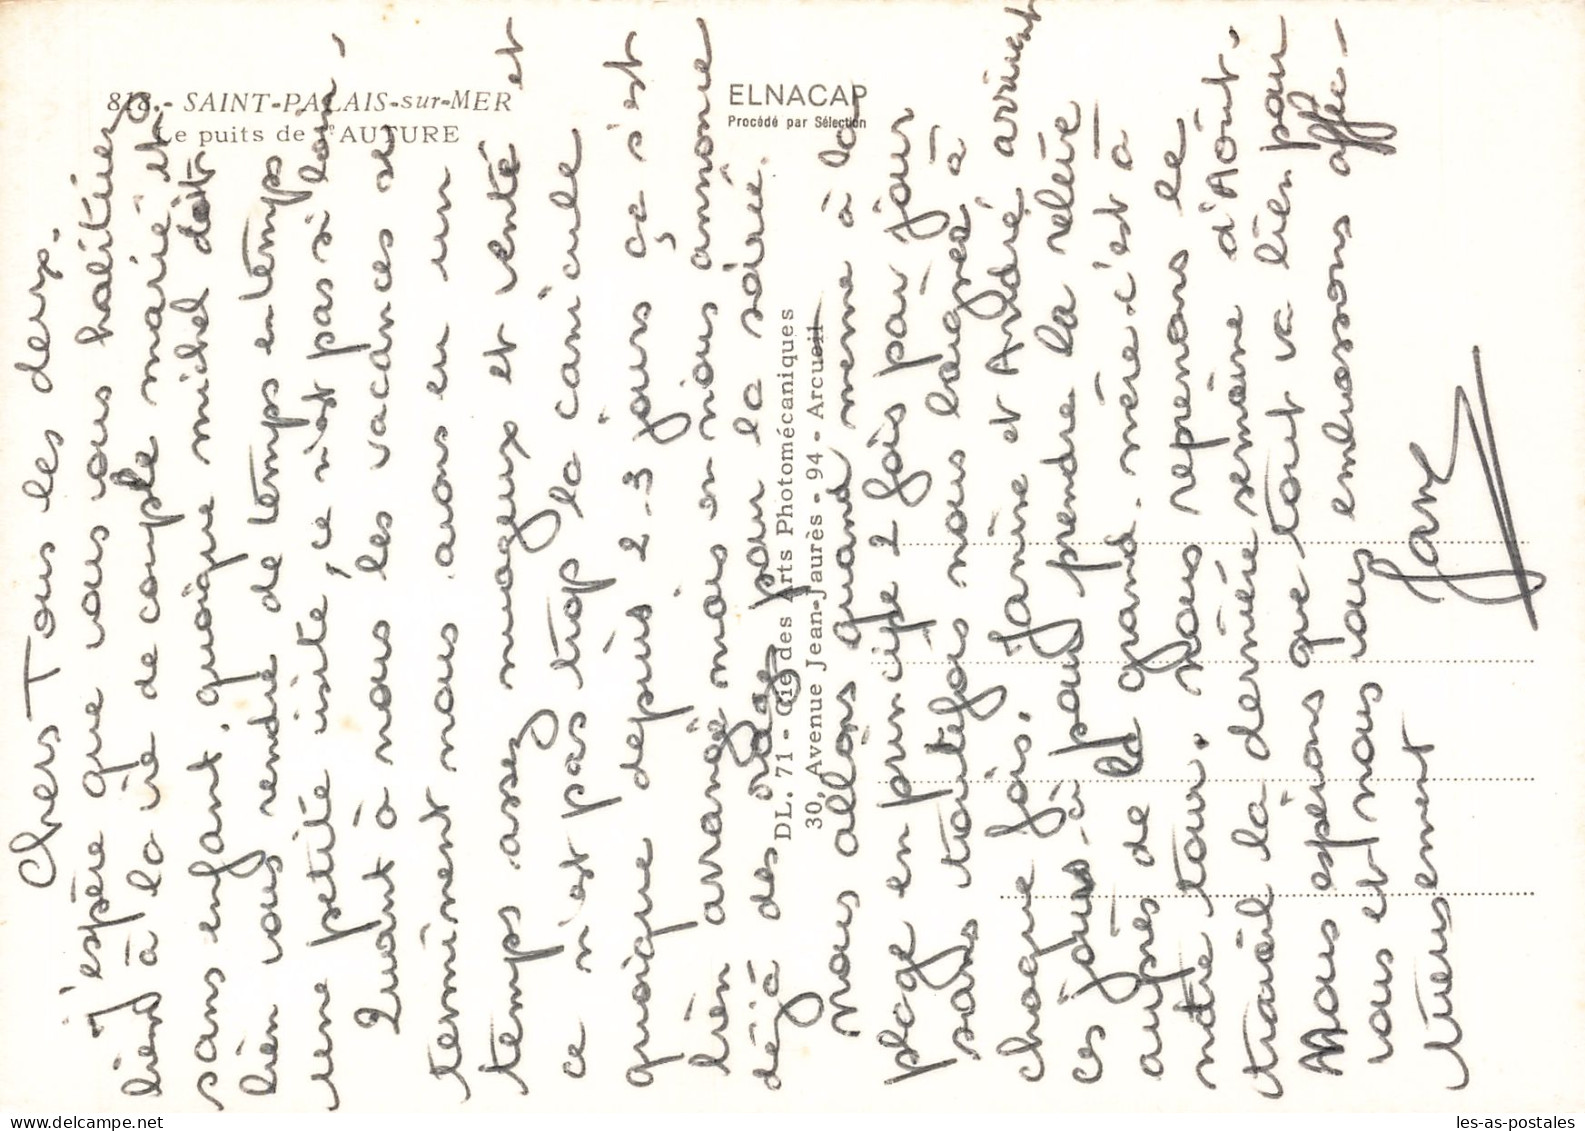 818.- SAINT-PALAIS-sur-MER
Le puits de l'AUTURE
ELNACAP
Procédé par Sélection
DL. 71 - Cie des Arts Photomécaniques
30, Avenue Jean-Jaurès - 94 - Arcueil
Chers Tous les deux.
J'espère que vous vous habituez
bien à la vie de couple marié et
sans enfant, quoique michel doit
bien vous rendre de temps en temps
une petite visite, ce n'est pas si loin -
Quant à nous les vacances se
terminent nous avons eu un
temps assez nuageux et venté et
ce n'est pas trop la canicule
quoique depuis 2-3 jours ça s'est
bien arrangé mais on nous annonce
déjà des orages pour la soirée.
nous allons quand même à la
plage en principe 2 fois par jour
sans toutefois nous baigner à
chaque fois. Janine et André arrivent
ces jours-ci pour prendre la relève
auprès de la grand-mère c'est à
notre tour. Nous reprenons le
travail la dernière semaine d'Août.
Nous espérons que tout va bien pour
vous et nous vous embrassons affec-
tueusement
les-as-postales.com